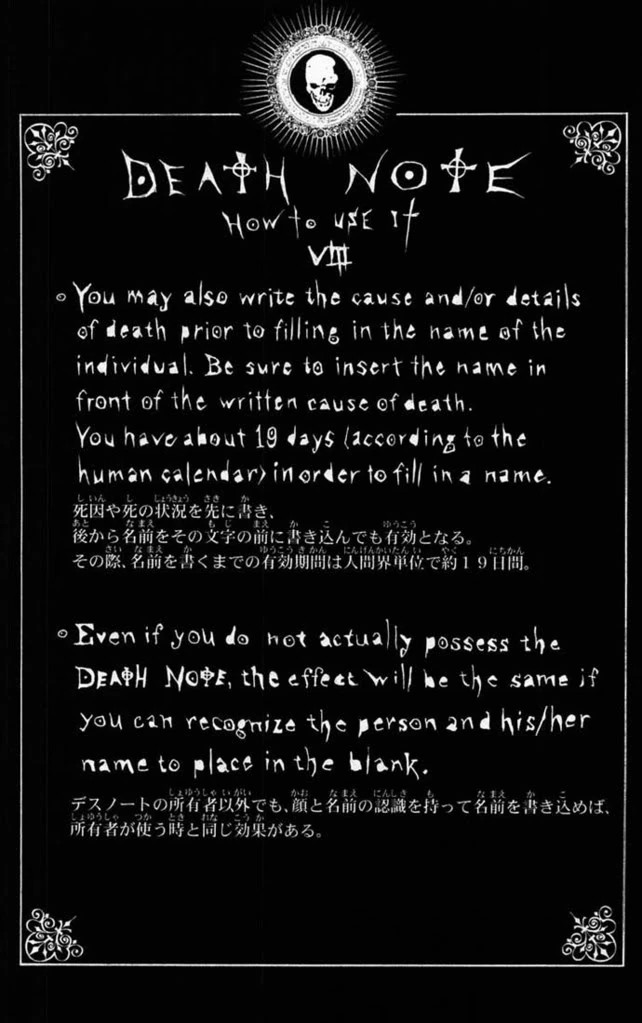 DEATH NOTE
HOW to USE It
VIII
You may also write the cause and/or details
of death prior to filling in the name of the
individual. Be sure to insert the name in
front of the written cause of death.
You have about 19 days (according to the
human calendar) in order to fill in a name.
死因や死の状況を先に書き、
後から名前をその文字の前に書き込んでも有効となる。
その際、名前を書くまでの有効期間は人間界単位で約19日間。
Even if you do not actually possess the
DEATH NOTE, the effect will be the same if
you can recognize the person and his/her
name to place in the blank.
デスノートの所有者以外でも、顔と名前の認識を持って名前を書き込めば、
所有者が使う時と同じ効果がある。